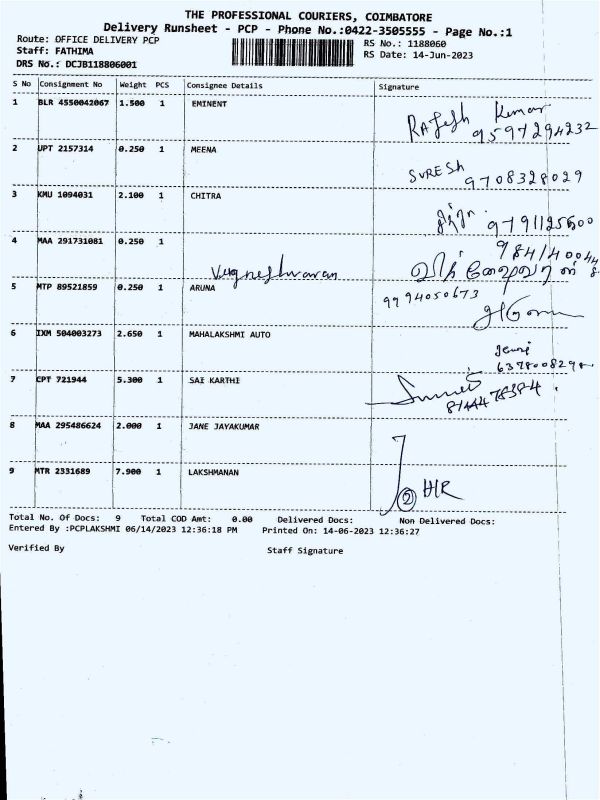 THE PROFESSIONAL COURIERS, COIMBATORE
Delivery Runsheet - PCP - Phone No.:0422-3505555 - Page No.:1
Route: OFFICE DELIVERY PCP RS No.: 1188060
Staff: FATHIMA RS Date: 14-Jun-2023
DRS No.: DCJB118806001
S No Consignment No Weight PCS Consignee Details Signature
1 BLR 4550042067 1.500 1 EMINENT
Rajesh Kumar
9597294232
2 UPT 2157314 0.250 1 MEENA
SURESH
9708328029
3 KMU 1094031 2.100 1 CHITRA
9791125600
4 MAA 291731081 0.250 1
Vigneshwaran
5 MTP 89521859 0.250 1 ARUNA
9994050673
6 IXM 504003273 2.650 1 MAHALAKSHMI AUTO
7 CPT 721944 5.300 1 SAI KARTHI
8 MAA 295486624 2.000 1 JANE JAYAKUMAR
9 MTR 2331689 7.900 1 LAKSHMANAN
2 HR
Total No. Of Docs: 9 Total COD Amt: 0.00 Delivered Docs: Non Delivered Docs:
Entered By :PCPLAKSHMI 06/14/2023 12:36:18 PM Printed On: 14-06-2023 12:36:27
Verified By Staff Signature